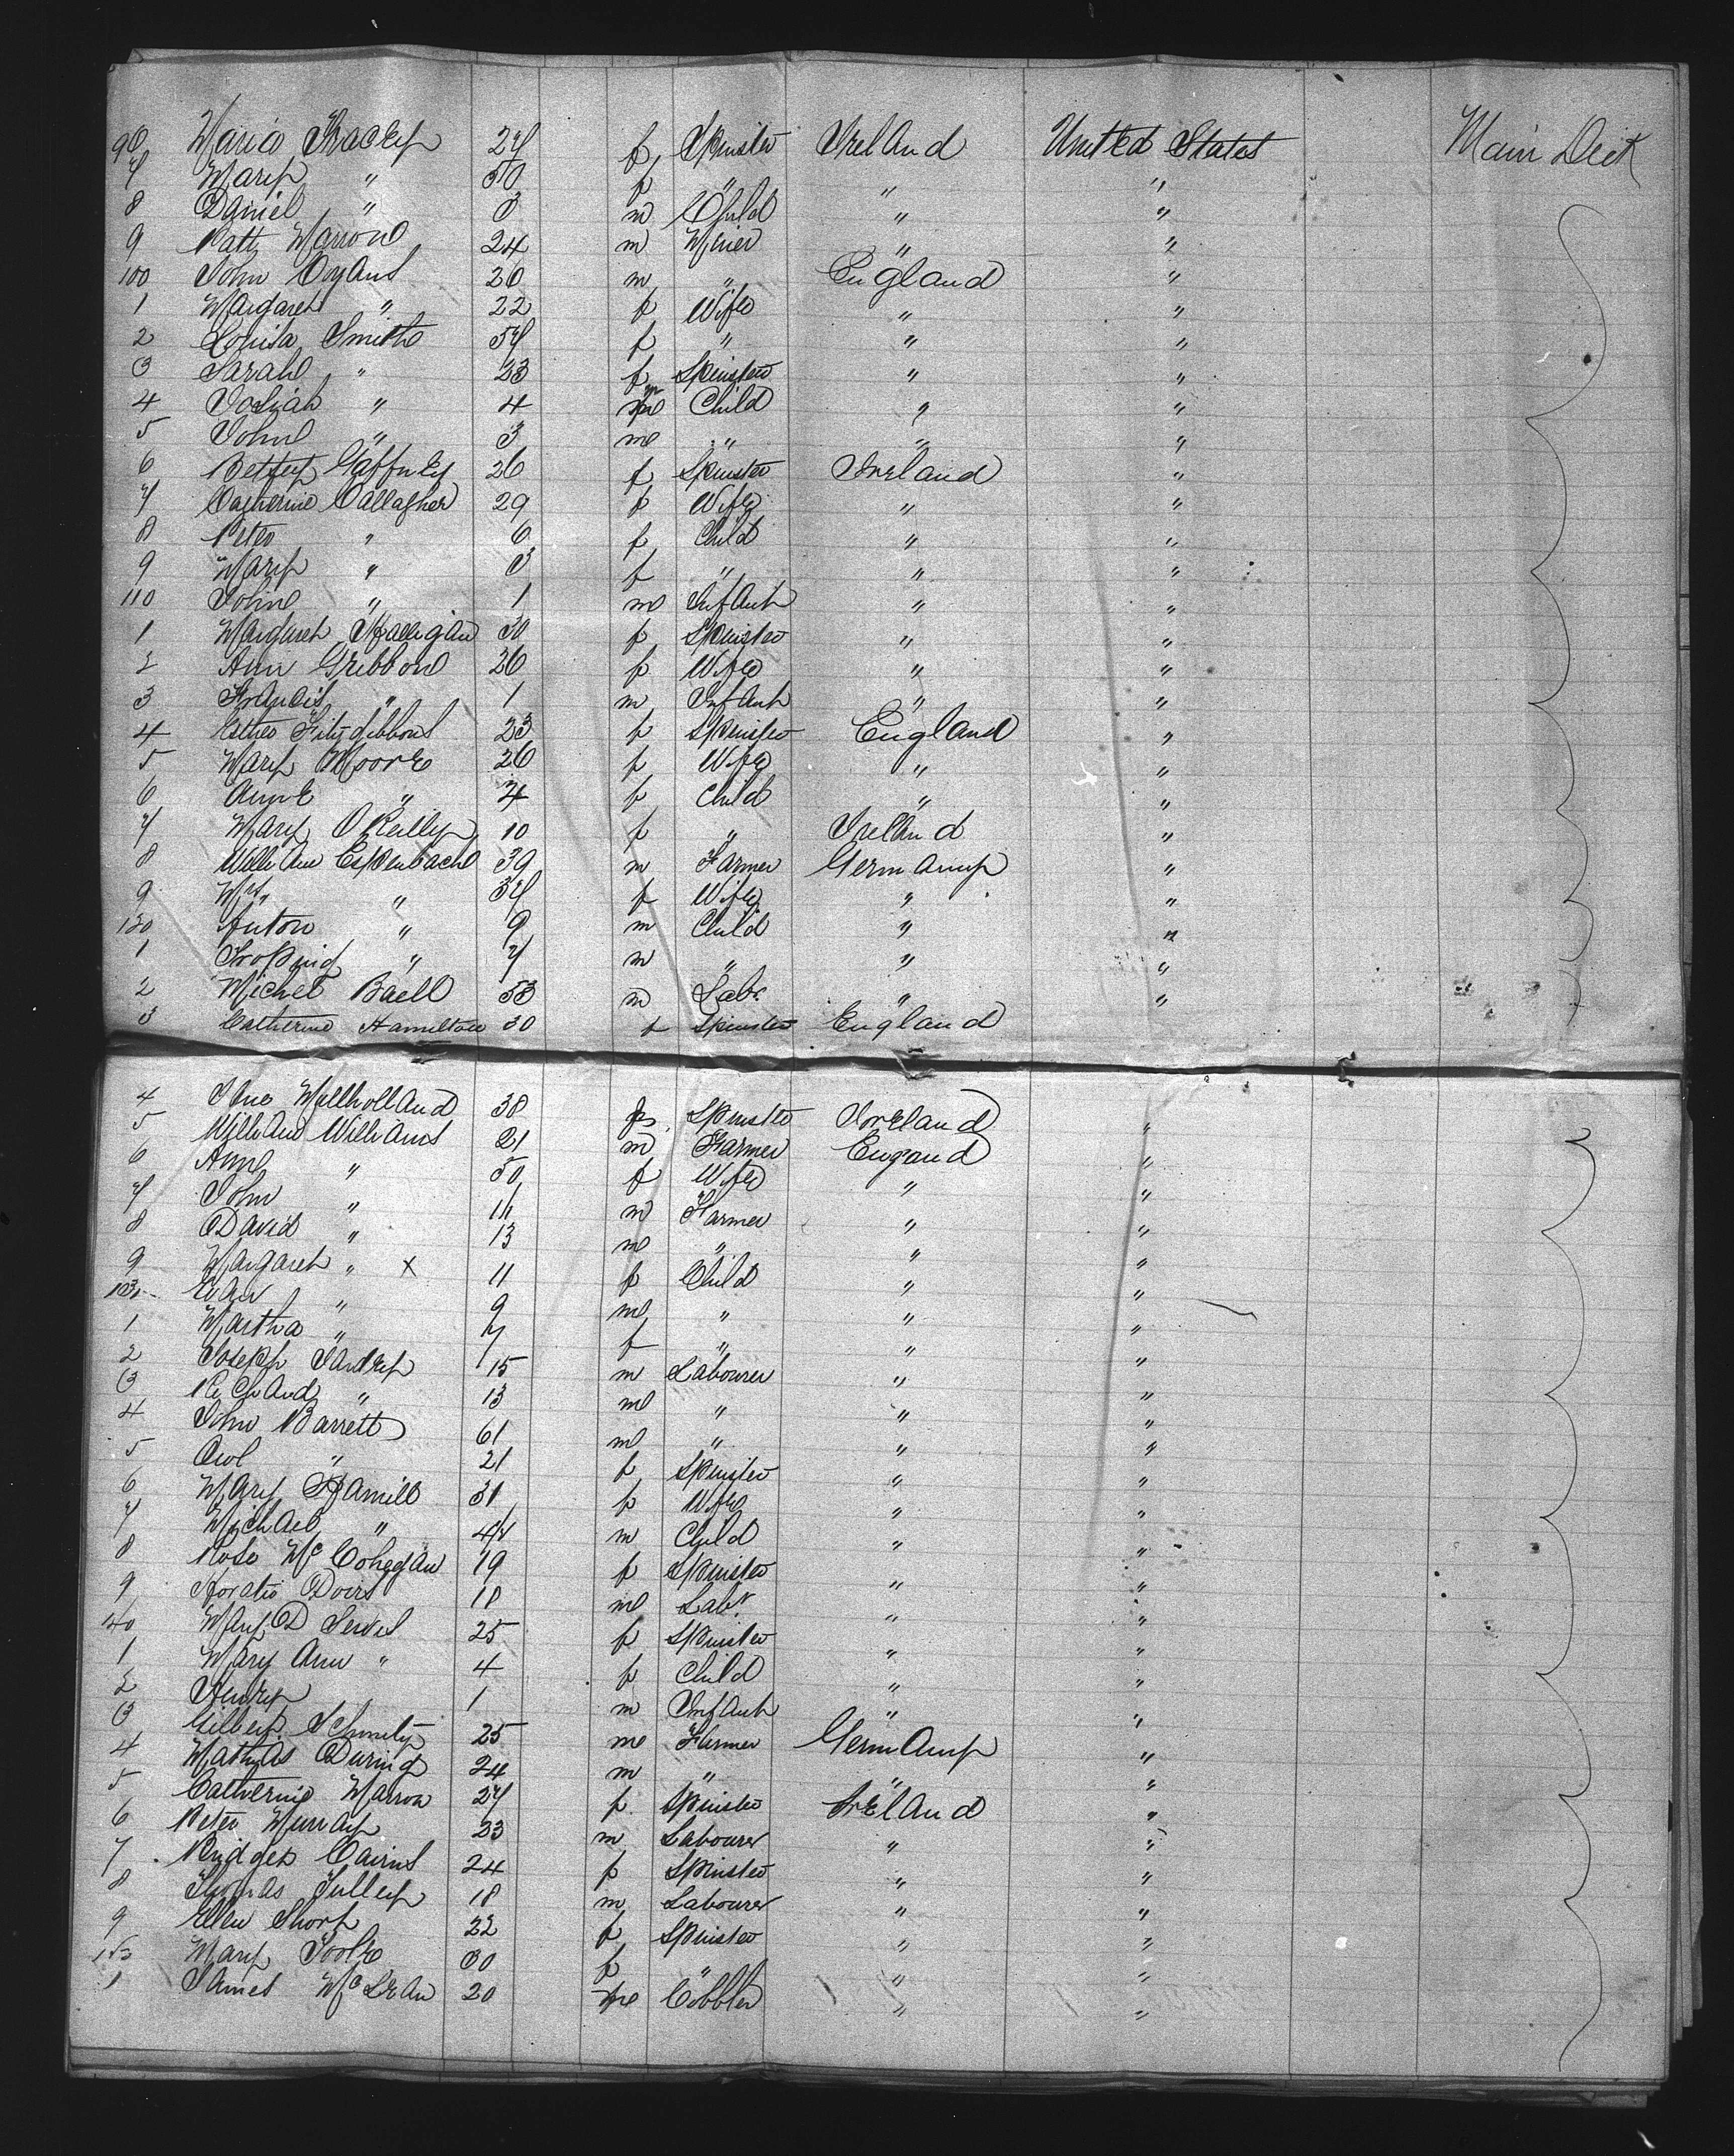 96 Maria Tracey 27 f Spinster Ireland United States Main Deck
7 Mary " 50 f " " "
8 Daniel " 3 m Child " "
9 Patk Marron 24 m Miner " "
100 John Evans 26 m " England "
1 Margaret " 22 f Wife " "
2 Louisa Smith 57 f " " "
3 Sarah " 23 f Spinster " "
4 Josiah " 4 m Child " "
5 John " 3 m " " "
6 Betsey Gaffney 26 f Spinster Ireland "
7 Catherine Callagher 29 f Wife " "
8 Peter " 6 f Child " "
9 Mary " 3 f " " "
110 John " 1 m Infant " "
1 Margaret Halligan 30 f Spinster " "
2 Ann Gribbon 26 f Wife " "
3 Francis " 1 m Infant " "
4 Esther Fitzgibbons 23 f Spinster England "
5 Mary Moore 26 f Wife " "
6 Anne " 4 f Child " "
7 Mary O Reilly 10 f " Ireland "
8 William Espenbach 39 m Farmer Germany "
9 Mrs " 37 f Wife " "
120 Anton " 9 m Child " "
1 " 7 m " " "
2 Michel Baell 53 m Labr " "
3 Catherine Hamilton 30 f Spinster England
4 Jane Mullholland 38 f Spinster Ireland "
5 William Williams 21 m Farmer Engand "
6 Ann " 50 f Wife " "
7 John " m Farmer " "
8 David " 13 m " " "
9 Margaret " x 11 f Child " "
130 Evan " 9 m " " "
1 Martha " 7 f " " "
2 Joseph 15 m Labourer " "
3 Richard " 13 m " " "
4 John Barrett 61 m " " "
5 " 21 f Spinster " "
6 Mary Hamill 31 f Wife " "
7 Michael " m Child " "
8 Rose Mc 19 f Spinster " "
9 Horatio 18 m Labr " "
40 Mary D 25 f Spinster " "
1 Mary Ann " 4 f Child " "
2 Henry 1 m Infant " "
3 25 m Farmer Germany "
4 Mathias During 24 m " " "
5 Catherine Marron 27 f Spinster Ireland "
6 Peter Murray 23 m Labourer " "
7 Bridget Cairns 24 f Spinster " "
8 Thomas Tulley 18 m Labourer " "
9 Ellen 22 f Spinster " "
150 Mary Toole 30 f " " "
1 James McLean 20 m Cobbler " "